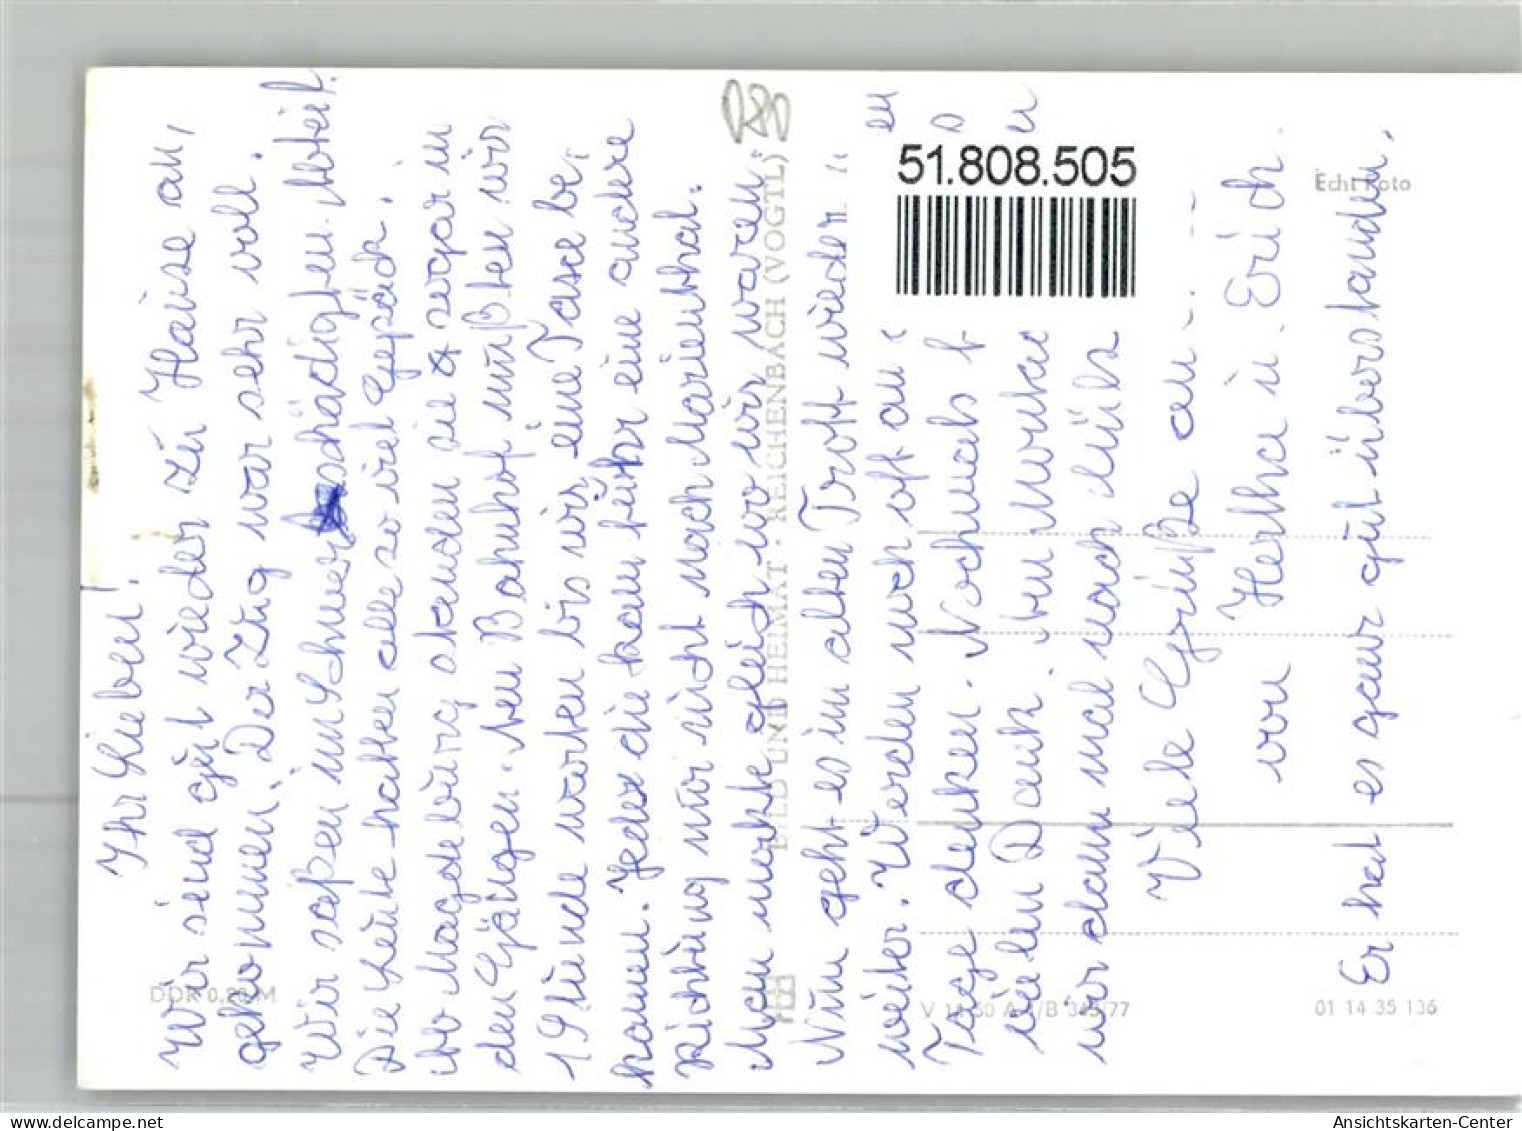 Ihr Lieben!
Wir sind gut wieder zu Hause an,
gekommen. Der Zug war sehr voll.
Wir saßen im Schwerbeschädigten Abteil.
Die Leute hatten alle so viel Gepäck.
Ab Magdeburg standen sie sogar in
den Gängen. Am Bahnhof mußten wir
1 Stunde warten bis wir eine Taxe be,
kamen. Jeder die kam fuhr eine andere
Richtung nur nicht nach Marienthal.
Man merkte gleich wo wir waren.
Nun geht es im alten Trott wieder
weiter. Werden noch oft an
Tage denken. Nochmals
vielen Dank.
wir dann mal nach
Viele Grüße an
von Hertha u. Erich.
Er hat es ganz gut überstanden.
BILD UND HEIMAT · REICHENBACH (VOGTL)
DDR 0,20 M
V 11 50 A 1/B 345/77
01 14 35 136
Echt Foto
51.808.505
Ansichtskarten-Center